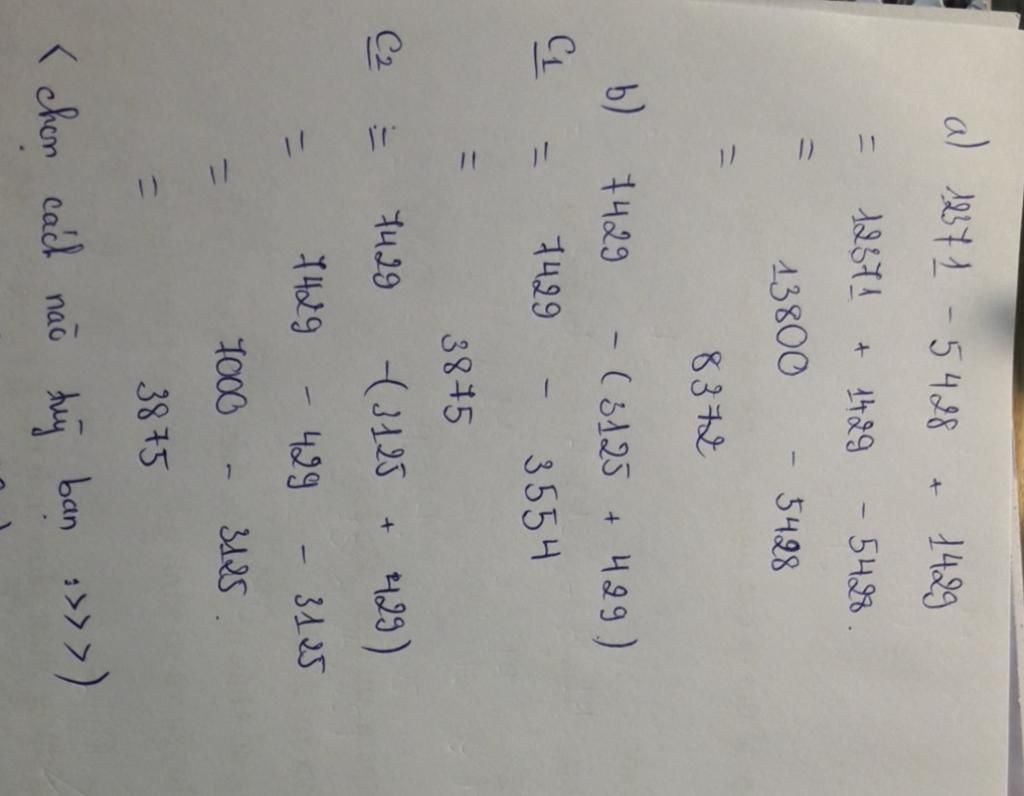 a) 12371 - 5428 + 1429
= 12371 + 1429 - 5428.
= 13800 - 5428
= 8372
b) 7429 - (3125 + 429)
C1 = 7429 - 3554
= 3875
C2 = 7429 -(3125 + 429)
= 7429 - 429 - 3125
= 7000 - 3125.
= 3875
( chọn cách nào tùy bạn :>>> )